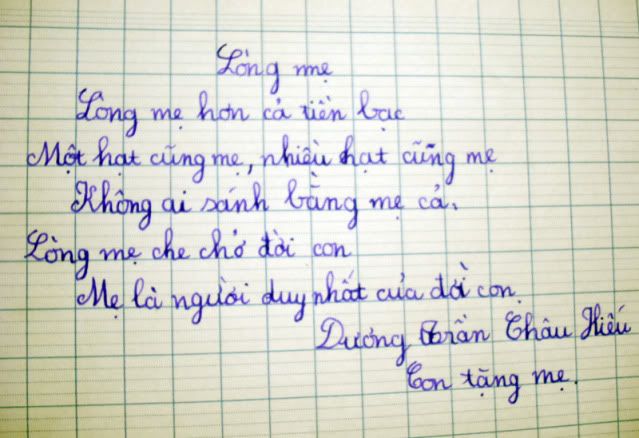 Lòng mẹ
Lòng mẹ hơn cả tiền bạc
Một hạt cũng mẹ, nhiều hạt cũng mẹ
Không ai sánh bằng mẹ cả.
Lòng mẹ che chở đời con
Mẹ là người duy nhất của đời con.
Dương Trần Châu Hiếu
Con tặng mẹ.